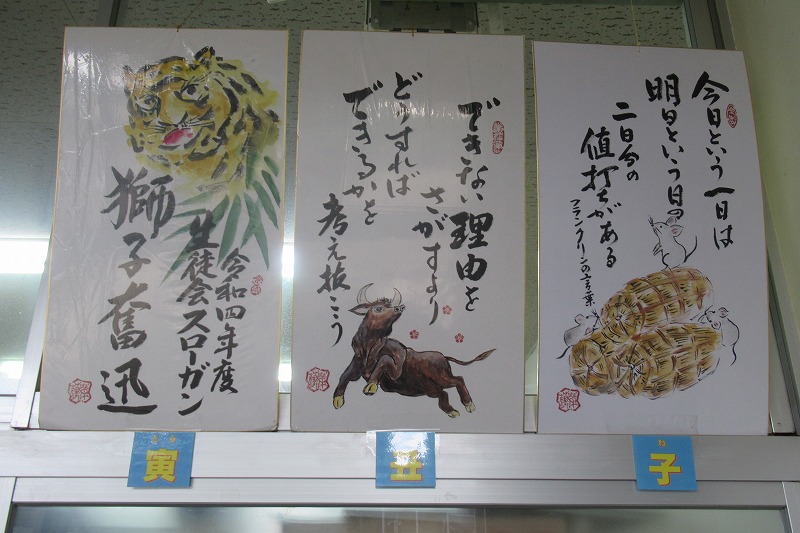 今日という一日は
明日という日の
二日分の
値打ちがある
フランクリンの言葉
できない理由を
さがすより
どうすれば
できるかを
考え抜こう
令和四年度
生徒会スローガン
獅子奮迅
ね
子
丑
とら
寅